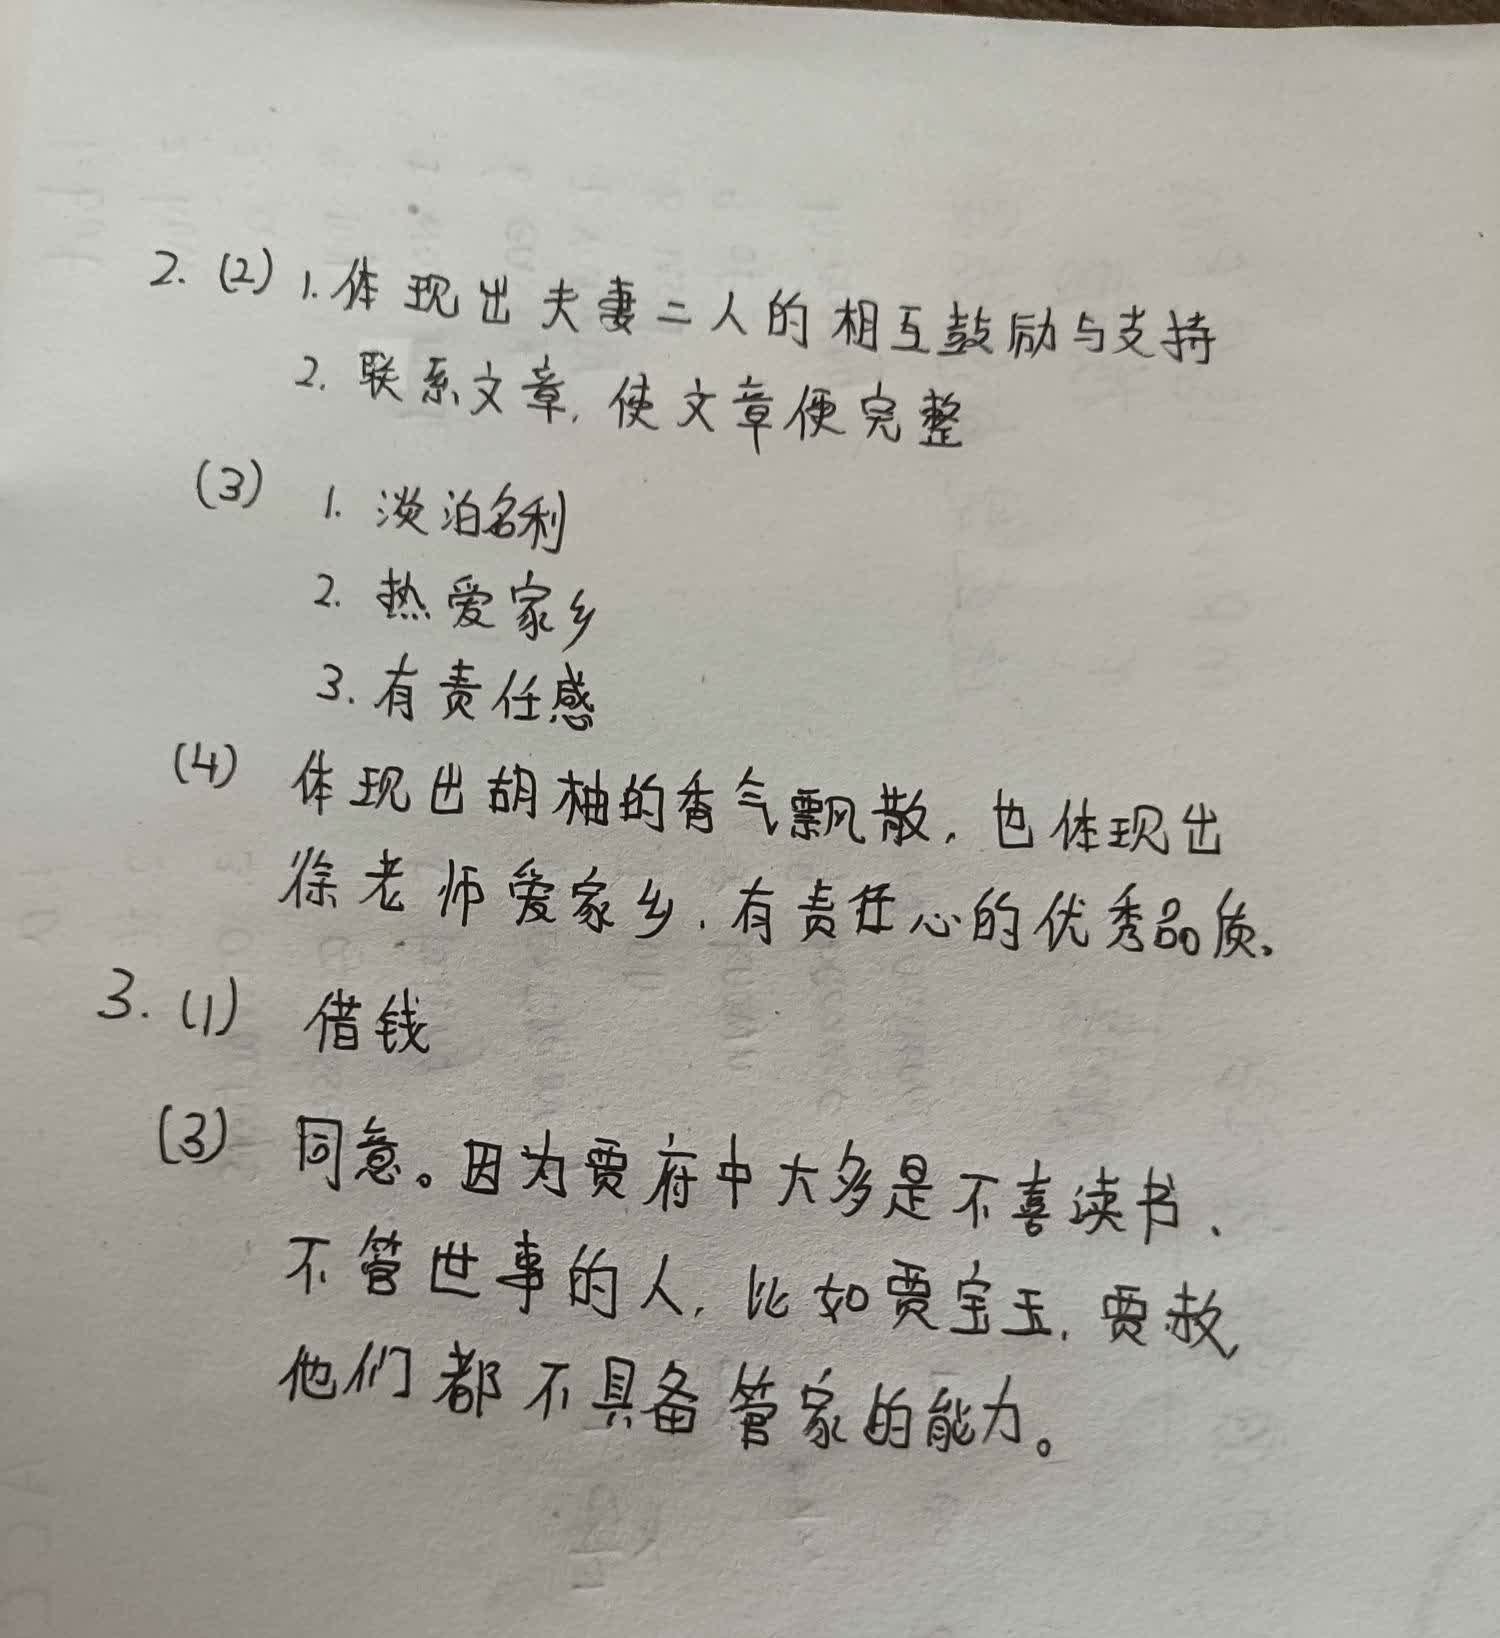 2. (2) 1. 体现出夫妻二人的相互鼓励与支持
2. 联系文章, 使文章便完整
(3) 1. 淡泊名利
2. 热爱家乡
3. 有责任感
(4) 体现出胡柚的香气飘散, 也体现出
徐老师爱家乡、有责任心的优秀品质。
3. (1) 借钱
(3) 同意。因为贾府中大多是不喜读书、
不管世事的人, 比如贾宝玉, 贾赦,
他们都不具备管家的能力。